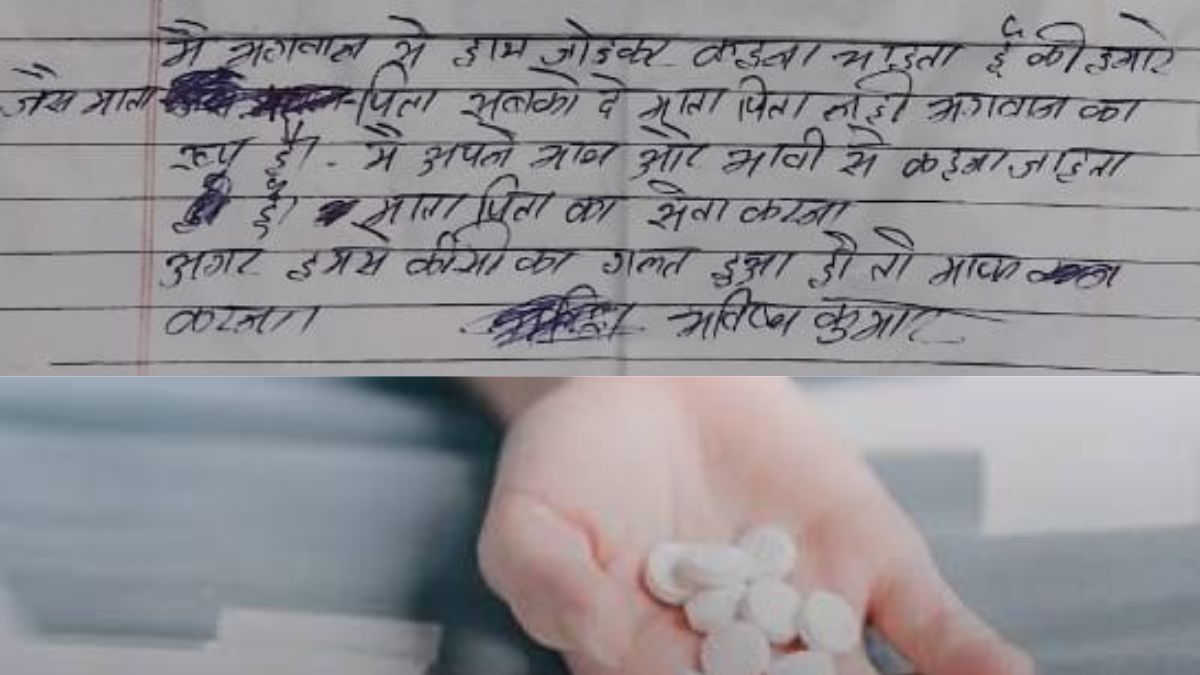 मै भगवान से हाथ जोडकर कहना चाहता हूँ की हमारे
जैसे माता पिता सबको दे माता पिता नही भगवान का
रूप है। मै अपने और भावी से कहना चाहता
है। माता पिता का सेवा करना
अगर हमसे कीसी का गलत हुआ हो तो माफ
करना।। कुमार